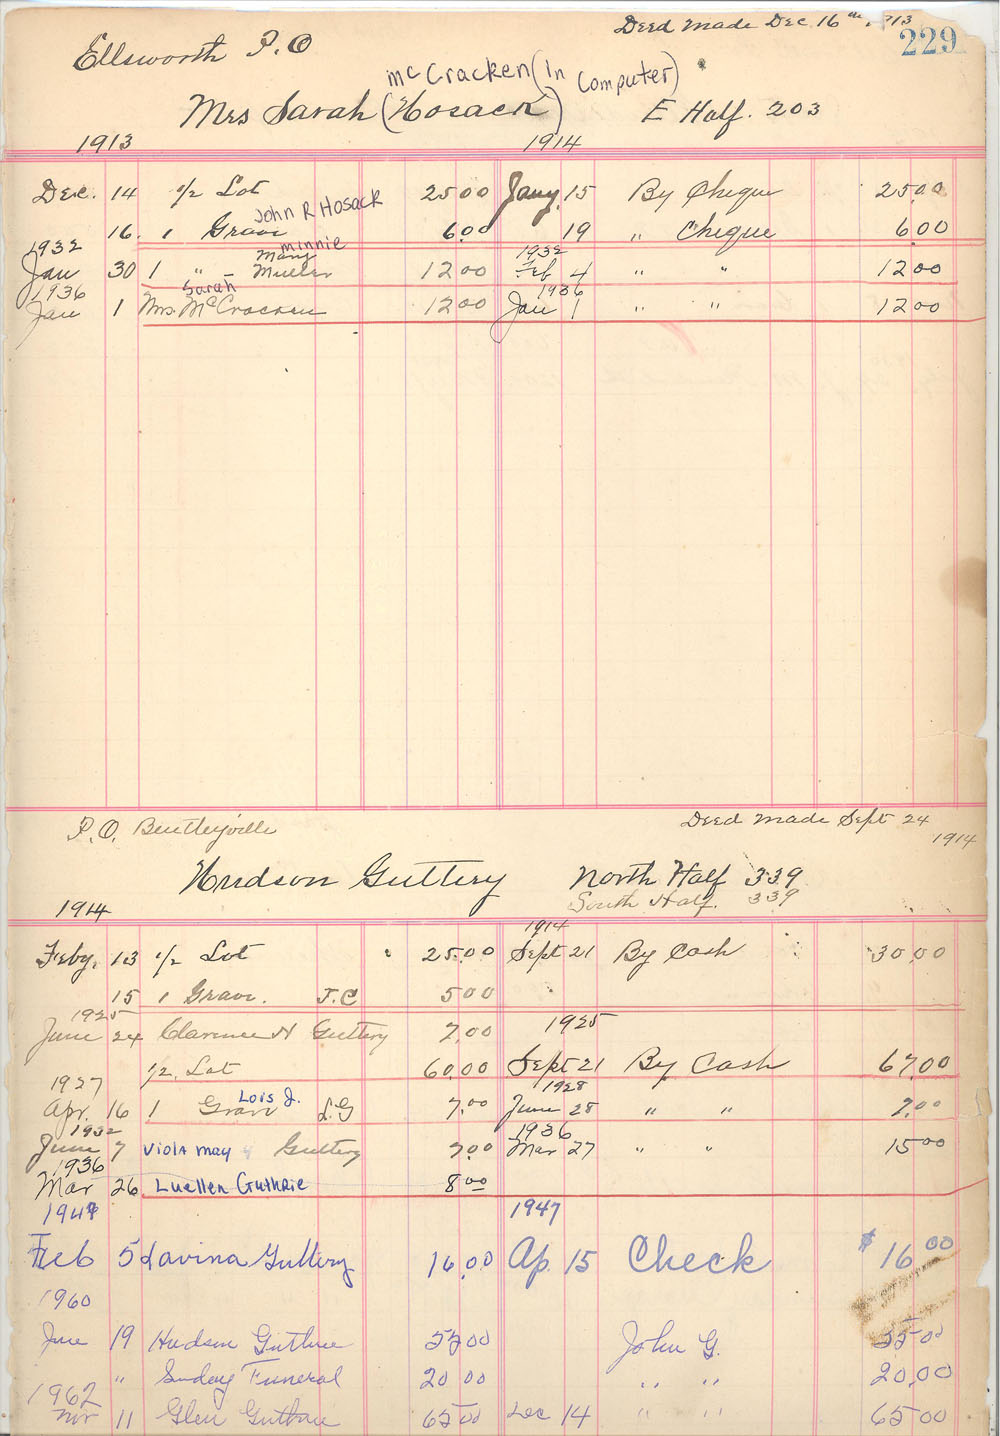 Deed Made Dec 16th, 1913
229
Ellsworth P.O
McCracken (In Computer)
Mrs Sarah (Hosack) E Half. 203
1913 1914
Dec. 14 1/2 Lot 25 00 Jany. 15 By Cheque 25.00
John R Hosack
16. 1 Grave 6.00 19 " Cheque 6.00
1932 Mary Minnie 1932
Jan 30 1 " - Mueller 12 00 Feb 4 " " 12 00
1936 Sarah 1936
Jan 1 Mrs. McCracken 12 00 Jan 1 " " 12 00
P.O. Bentleyville Deed Made Sept 24
1914
Hudson Guttery North Half 339
South Half. 339
1914 1914
Feby. 13 1/2 Lot 25.00 Sept 21 By Cash 30.00
15 1 Grave. J.C 5 00
1925 1925
June 24 Clarence H Guttery 7.00
1/2 Lot 60.00 Sept 21 By Cash 67.00
1927 Lois J. 1928
Apr. 16 1 Grave L.G 7.00 June 28 " " 7.00
1932 1936
June 7 Viola May Guttery 7.00 Mar 27 " " 15 00
1936
Mar 26 Luellen Guthrie 8 00
1947 1947
Feb 5 Lavina Guttery 16.00 Ap. 15 Check $16 00
1960
June 19 Hudson Guthrie 55 00 John G. 55 00
" Sunday Funeral 20 00 " " 20.00
1962
Nov 11 Glen Guthrie 65 00 Dec 14 " " 65 00